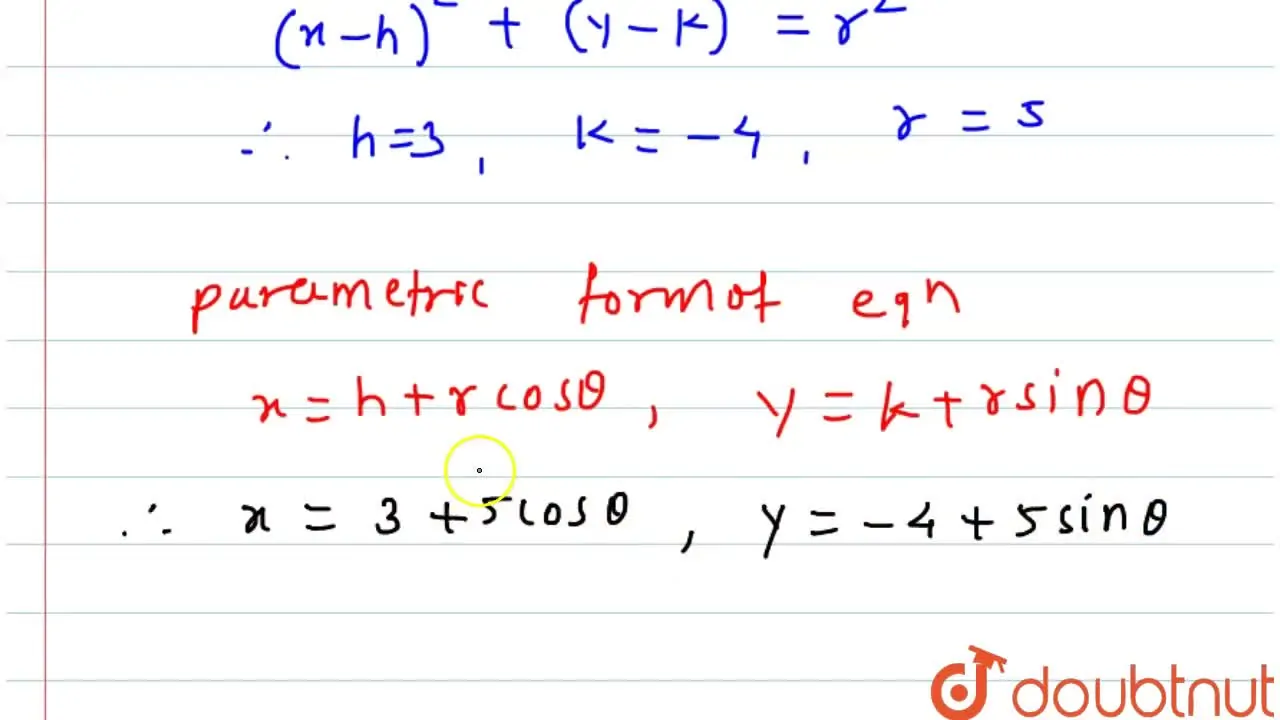 (x-h)² + (y-k) = r²
∴ h=3, k=-4, r=5
parametric form of eqn
x=h+rcosθ, y=k+rsinθ
∴ x=3+5cosθ, y=-4+5sinθ
doubtnut